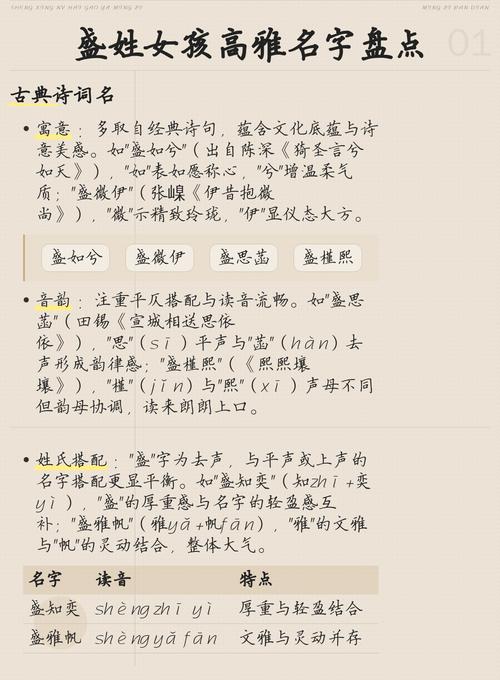 SHENG XING NV HAI GAO YA MING ZI
MING ZI PAN DIAN
盛姓女孩高雅名字盘点
01
古典诗词名
• 寓意：多取自经典诗句，蕴含文化底蕴与诗
意美感。如"盛如兮"（出自陈深《猗圣言兮
如天》），"如"表如愿称心，"兮"增温柔气
质；"盛微伊"（张嵲《伊昔抱微
尚》），"微"示精致玲珑，"伊"显仪态大方。
盛如兮 盛微伊 盛思菡 盛槿熙
• 音韵：注重平仄搭配与读音流畅。如"盛思
菡"（田锡《宣城相送思依
依》），"思"（sī）平声与"菡"（hàn）去
声形成韵律感；"盛槿熙"（《熙熙壤
壤》），"槿"（jǐn）与"熙"（xī）声母不同
但韵母协调，读来朗朗上口。
• 姓氏搭配："盛"字为去声，与平声或上声的
名字搭配更显平衡。如"盛知奕"（知zhī+奕
yì），"盛"的厚重感与名字的轻盈感互
补；"盛雅帆"（雅yǎ+帆fān），"雅"的文雅
与"帆"的灵动结合，整体大气。
名字 读音 特点
盛知奕 shèng zhī yì 厚重与轻盈结合
盛雅帆 shèng yǎ fān 文雅与灵动并存